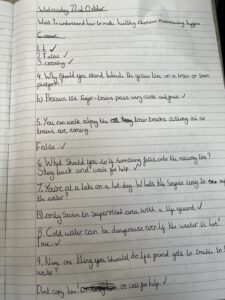 Wednesday 22nd October
Want To understand how to make healthy choices
Covered
1. b ✓
2. False ✓
3. crossing ✓
4. Why Should you stand behind the yellow line on a train or tram
platform?
b) Because its trains pass very close and fast ✓
5. You can walk along the train tracks as long as no
trains are coming?
False ✓
6. What Should you do if Something falls onto the railway line?
Stay back and wait for help ✓
7. You're at a lake on a hot day. What's the Safest way to
the water?
B) only Swim in Supervised area with a life guard ✓
8. Cold water can be dangerous even if the weather is hot?
True ✓
9. Name one thing you Should do if a friend gets in trouble in the
water?
Dont copy him or call for help ✓